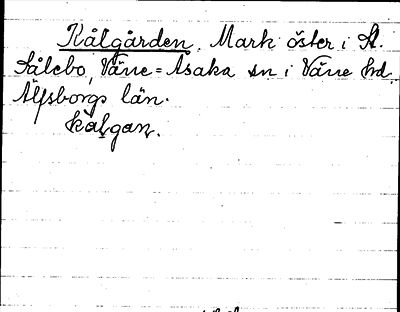 Kålgården. Mark öster i St.
Sålebo, Väne-Åsaka sn i Väne hd.
Älfsborgs län.
kålgan.